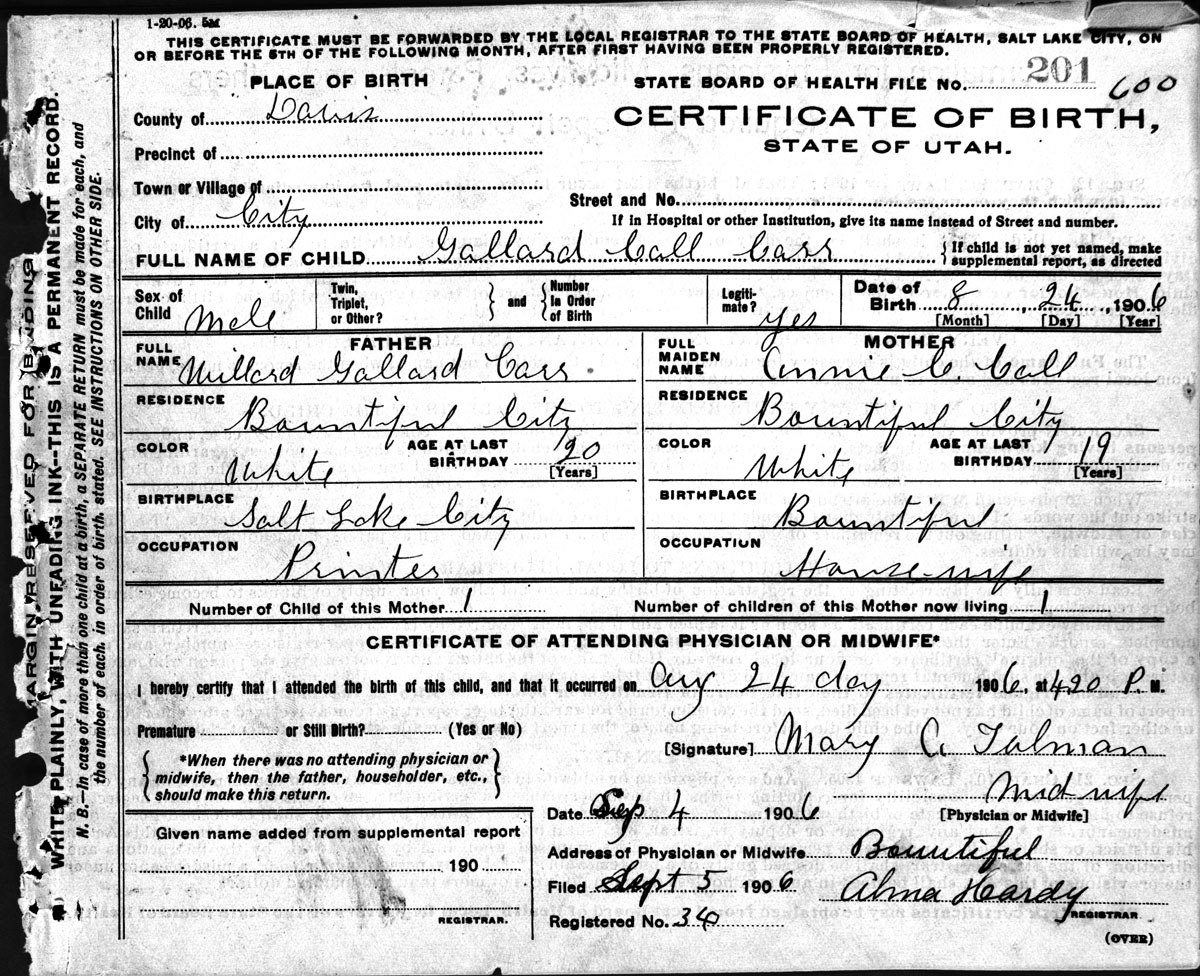 1-20-06. 5M
THIS CERTIFICATE MUST BE FORWARDED BY THE LOCAL REGISTRAR TO THE STATE BOARD OF HEALTH, SALT LAKE CITY, ON
OR BEFORE THE 5TH OF THE FOLLOWING MONTH, AFTER FIRST HAVING BEEN PROPERLY REGISTERED.
PLACE OF BIRTH
STATE BOARD OF HEALTH FILE NO. 201 600
County of Davis
CERTIFICATE OF BIRTH,
STATE OF UTAH.
Precinct of
Town or Village of
Street and No.
City of City
If in Hospital or other Institution, give its name instead of Street and number.
FULL NAME OF CHILD Gallard Call Carr { If child is not yet named, make
supplemental report, as directed
Sex of Child Male
Twin, Triplet, or Other? } and { Number in Order of Birth
Legiti- mate? yes
Date of Birth 8, 24, 1906
[Month] [Day] [Year]
FATHER
FULL NAME Willard Gallard Carr.
RESIDENCE Bountiful City
COLOR White AGE AT LAST BIRTHDAY 20 [Years]
BIRTHPLACE Salt Lake City
OCCUPATION Printer
MOTHER
FULL MAIDEN NAME Annie C. Call
RESIDENCE Bountiful City
COLOR White AGE AT LAST BIRTHDAY 19 [Years]
BIRTHPLACE Bountiful
OCCUPATION House-wife
Number of Child of this Mother 1 Number of children of this Mother now living 1
CERTIFICATE OF ATTENDING PHYSICIAN OR MIDWIFE*
I hereby certify that I attended the birth of this child, and that it occurred on Aug 24 day 1906, at 420 P. M.
Premature or Still Birth? (Yes or No)
{ *When there was no attending physician or
midwife, then the father, householder, etc.,
should make this return. }
[Signature] Mary C Tolman
Midwife
[Physician or Midwife]
Date Sep 4 1906
Given name added from supplemental report
190
REGISTRAR.
Address of Physician or Midwife Bountiful
Filed Sept 5 1906 Alma Hardy
REGISTRAR
Registered No. 34
(OVER)
MARGIN RESERVED FOR BINDING
WRITE PLAINLY, WITH UNFADING INK--THIS IS A PERMANENT RECORD.
N. B.--In case of more than one child at a birth, a SEPARATE RETURN must be made for each, and
the number of each, in order of birth, stated. SEE INSTRUCTIONS ON OTHER SIDE.